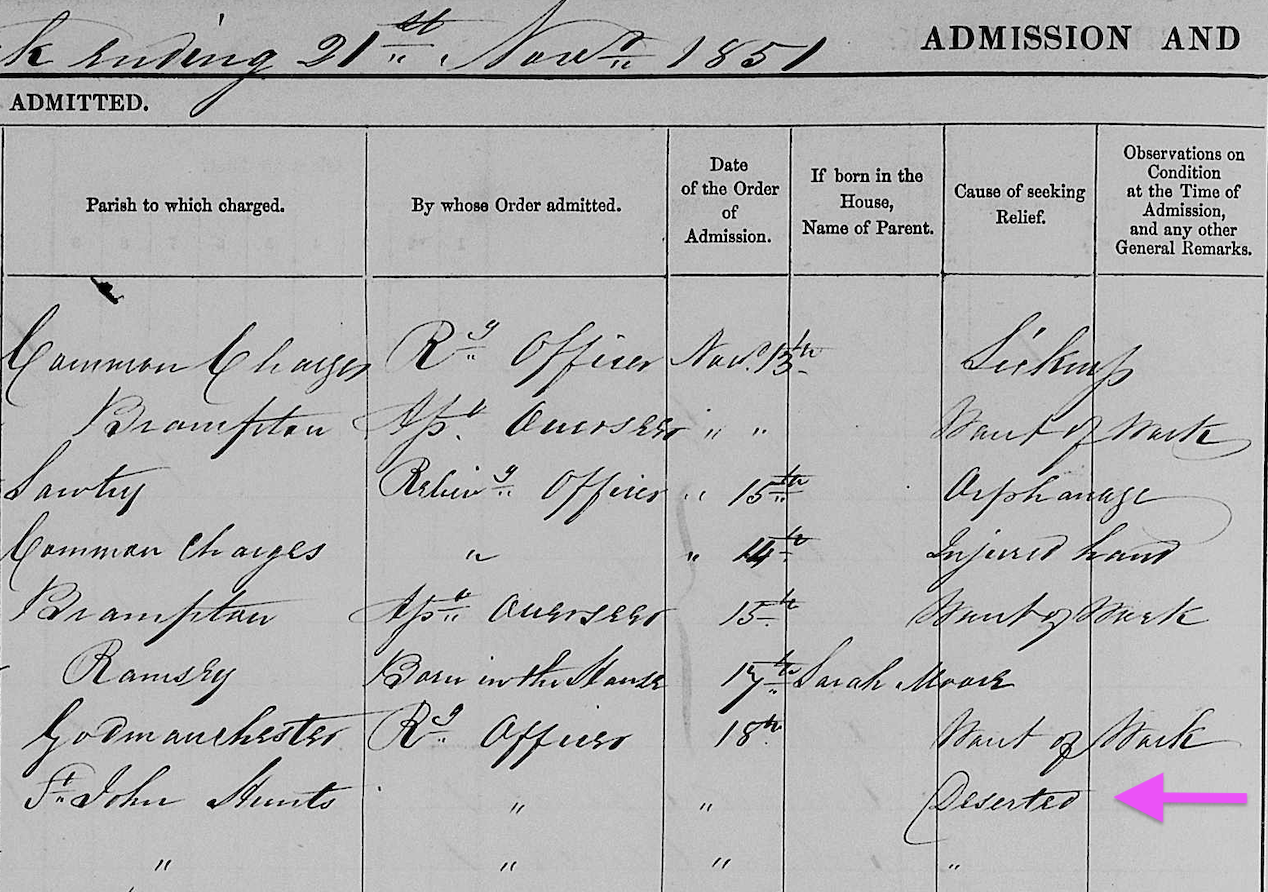 k ending 21st Novr 1851 ADMISSION AND
ADMITTED.
Parish to which charged.
By whose Order admitted.
Date
of the Order
of
Admission.
If born in the
House,
Name of Parent.
Cause of seeking
Relief.
Observations on
Condition
at the Time of
Admission,
and any other
General Remarks.
Common Charges Rg Officer Novr 13th Sickness
Brampton Asst Overseer " " Want of Work
Sawtry Relievg Officer " 15th Orphanage
Common Charges " " 14th Injured hand
Brampton Asst Overseer 15th Want of Work
Ramsey Born in the House 17th Sarah Moore
Godmanchester Rg Officer 18th Want of Work
St John Hunts " " Deserted
" " " "